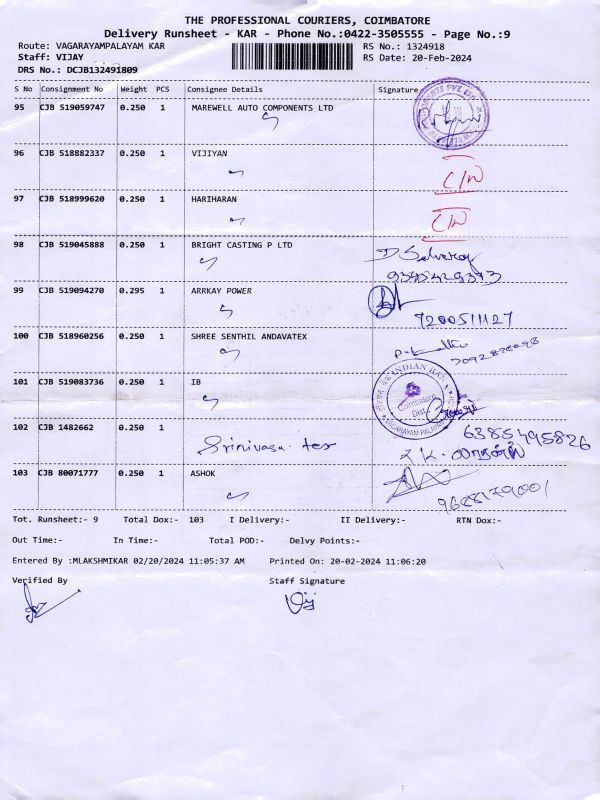 THE PROFESSIONAL COURIERS, COIMBATORE
Delivery Runsheet - KAR - Phone No.:0422-3505555 - Page No.:9
Route: VAGARAYAMPALAYAM KAR RS No.: 1324918
Staff: VIJAY RS Date: 20-Feb-2024
DRS No.: DCJB132491809
S No Consignment No Weight PCS Consignee Details Signature
95 CJB 519059747 0.250 1 MAREWELL AUTO COMPONENTS LTD
96 CJB 518882337 0.250 1 VIJIYAN
97 CJB 518999620 0.250 1 HARIHARAN
98 CJB 519045888 0.250 1 BRIGHT CASTING P LTD
99 CJB 519094270 0.295 1 ARRKAY POWER
7200511127
100 CJB 518960256 0.250 1 SHREE SENTHIL ANDAVATEX
101 CJB 519083736 0.250 1 IB
INDIAN BANK
Coimbatore
Dist.
102 CJB 1482662 0.250 1 6385495826
Srinivasa tex
103 CJB 80071777 0.250 1 ASHOK
Tot. Runsheet:- 9 Total Dox:- 103 I Delivery:- II Delivery:- RTN Dox:-
Out Time:- In Time:- Total POD:- Delvy Points:-
Entered By :MLAKSHMIKAR 02/20/2024 11:05:37 AM Printed On: 20-02-2024 11:06:20
Verified By Staff Signature
Vij